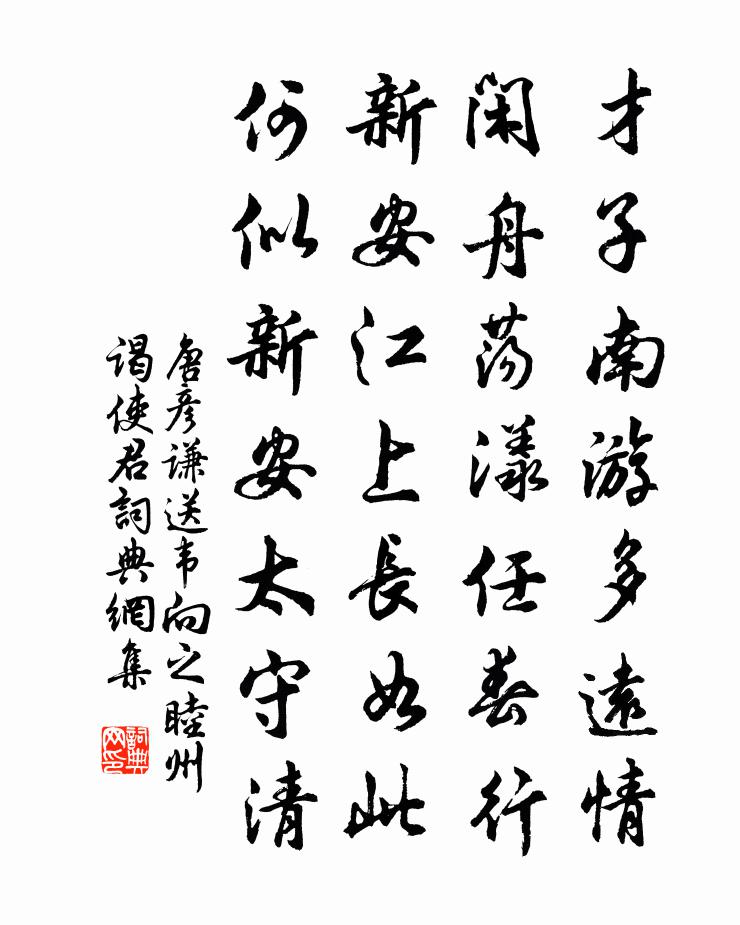 才子南游多遠情
闲舟荡漾任春行
新安江上長如此
何似新安太守清
唐彦谦送韦向之睦州
谒使君詞典網集
詞典
网印